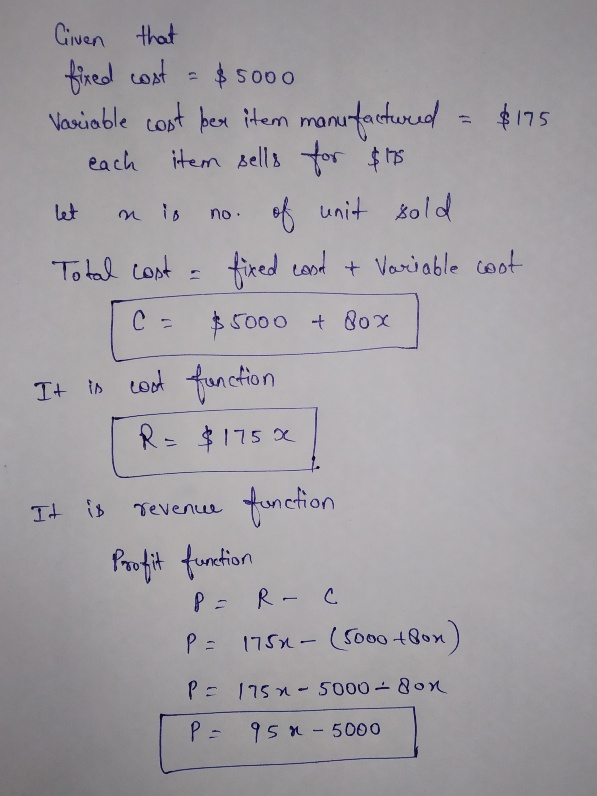 Given that
fixed cost = $5000
Variable cost per item manufactured = $175
each item sells for $175
let x is no. of unit sold
Total cost = fixed cost + Variable cost
C = $5000 + 80x
It is cost function
R = $175x
It is revenue function
Profit function
P = R - C
P = 175x - (5000+80x)
P = 175x - 5000 - 80x
P = 95x - 5000